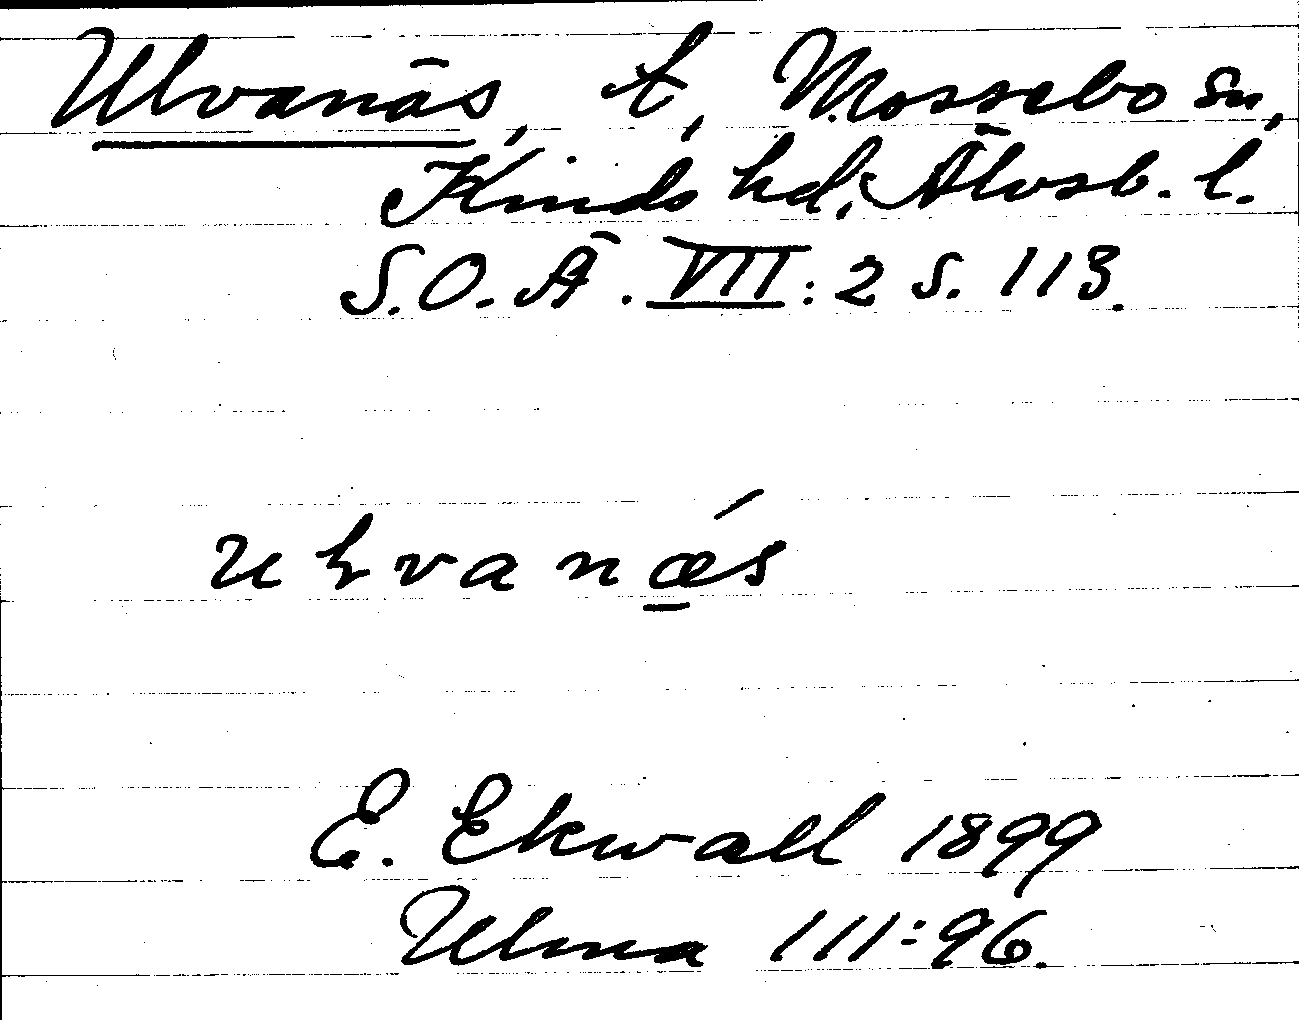 Ulvanäs, t, Mossebo sn,
Kinds hd, Älvsb. l.
S.O.Ä. VII:2 s. 113.
uɫvanǽs
E. Ekwall 1899
Ulma 111:96.